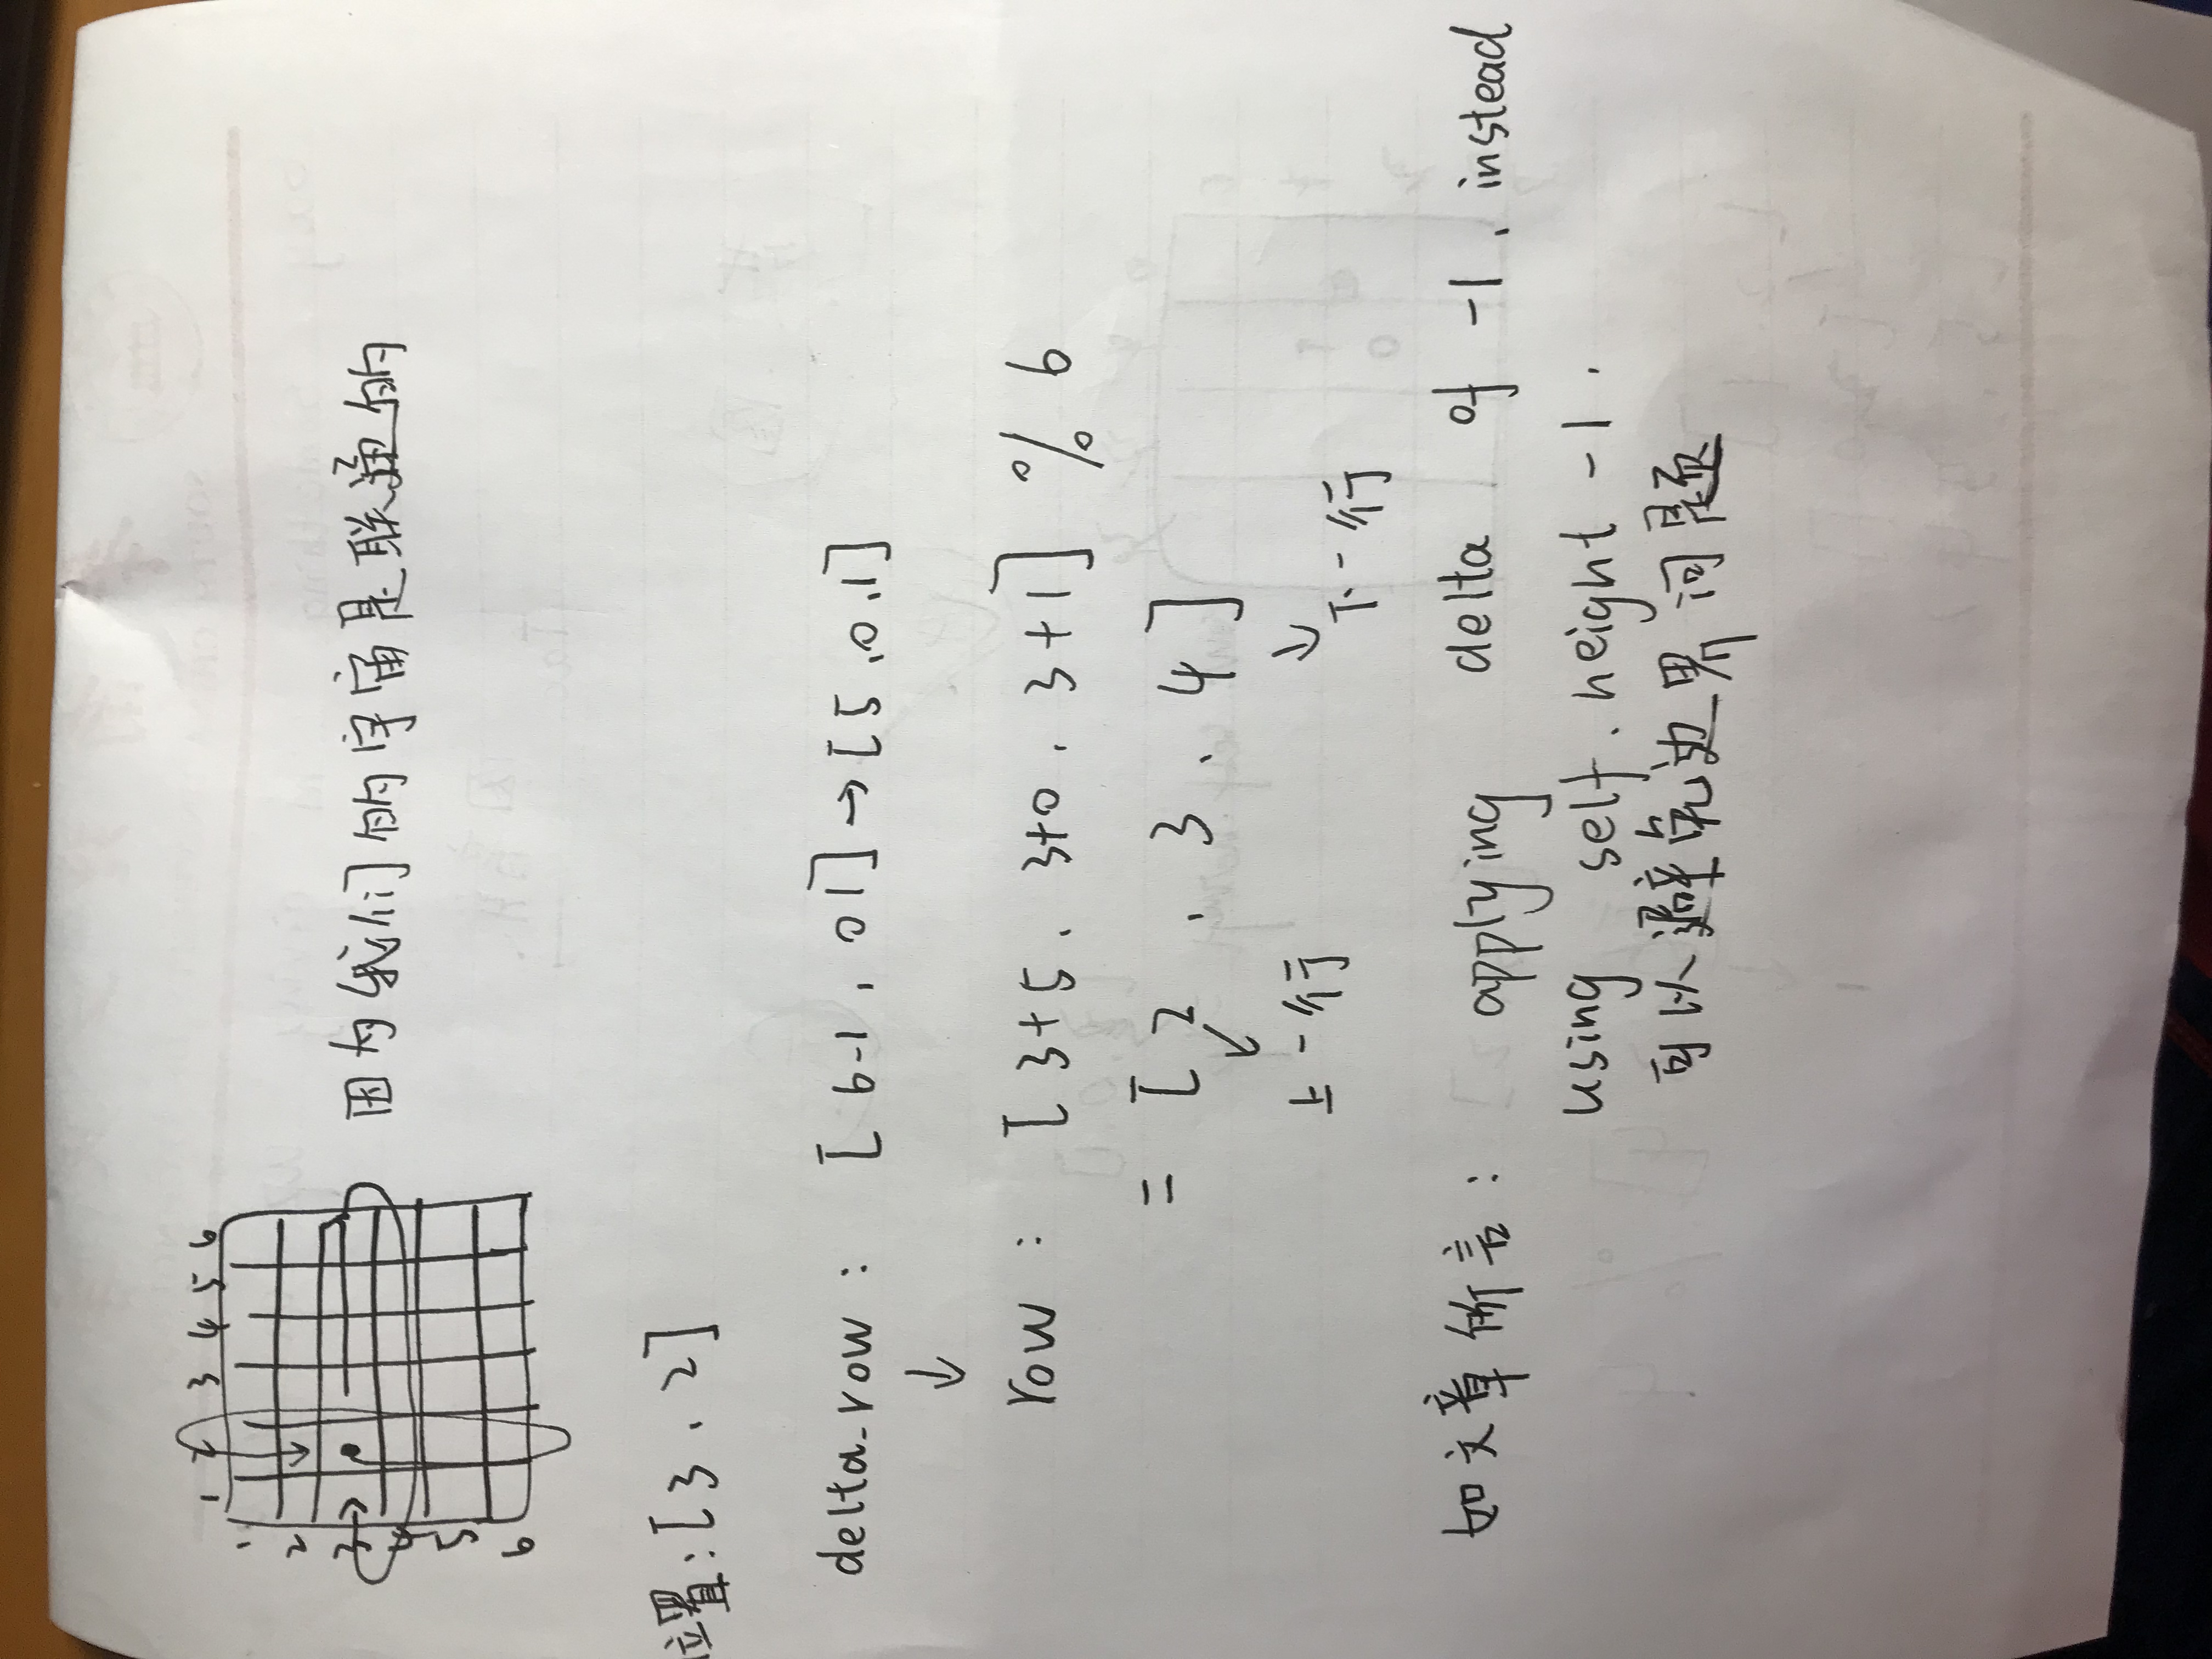 1 2 3 4 5 6
1
2
3
4
5
6
因为我们的宇宙是联通的
位置:[3、2]
delta_row : [6-1, 0 1] → [5,0,1]
↓
row : [3+5、3+0、3+1] % 6
= [2、3、4]
上一行
下一行
如文章所言: applying delta of -1, instead
using self.height -1.
可以避免边界问题